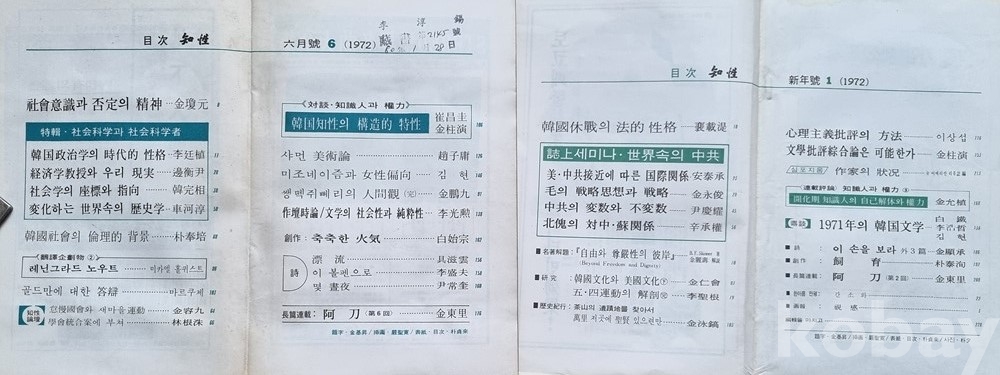 目次 知性
六月號 6 (1972)
李 淳 錫
藏書
社會意識과 否定의 精神 金瓊元 8
特輯·社会科学과 社会科学者
韓国政治学의 時代的 性格 李廷植
経済学教授와 우리 現実 邊衡尹
社会学의 座標와 指向 韓完相
変化하는 世界속의 歴史学 車河淳
韓國社會의 倫理的 背景 朴奉培
《翻譯企劃物 ②》
레닌그라드 노우트 미카엘 홀퀴스트
골드만에 대한 答辯 마르쿠제
知性論壇
怠慢國會와 새마을運動 金容九
學會統合案에 부쳐 林根洙
《対談·知識人과 權力》
韓国知性의 構造的 特性 崔昌圭 金柱演
샤먼 美術論 趙子庸
미조네이즘과 女性偏向 金 현
쌩떽쥐뻬리의 人間觀 (完) 金鵬九
作壇時論/文学의 社会性과 純粋性 李光勲
創作: 축축한 火気 白始宗
詩
漂 流 具滋雲
이 볼펜으로 李盛夫
몇 晝夜 尹常奎
長篇連載: 阿 刀 (第6回) 金東里
題字·金基昇/揷画·嚴聖實/表紙·目次·朴貞來
目次 知性
新年號 1 (1972)
韓國休戰의 法的 性格 裵載湜
誌上세미나·世界속의 中共
美·中共接近에 따른 国際関係 安泰承
毛의 戰略思想과 戰略 金永俊
中共의 変数와 不変数 尹慶耀
北傀의 対中·蘇関係 辛承權
■名著解題: 『自由와 尊嚴性의 彼岸』
(Beyond Freedom and Dignity)
■硏究: 韓國文化와 美國文化 金仁會
五·四運動의 解剖 李聖根
■歷史紀行: 茶山의 遺蹟地를 찾아서
萬里 저곳에 聖賢 있으련만 金泳鎬
心理主義批評의 方法 이상섭
文學批評綜合論은 可能한가 金柱演
作家의 狀況
連載評論/知識人과 權力 ③
開化期 知識人의 自己解体와 權力 金允植
鼎談
1971年의 韓国文学 白 鐵 李浩哲 김 현
■詩: 이 손을 보라 外3篇 金顯承
■創作: 飼 育 朴泰洵
■長篇連載: 阿 刀 (第2回) 金東里
kobay